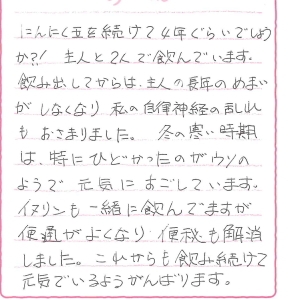 にんにく玉を続けて4年ぐらいでしょう
か?! 主人と2人で飲んでいます。
飲み出してからは、主人の長年のめまい
がしなくなり 私の自律神経の乱れ
もおさまりました。 冬の寒い時期
は、特にひどかったのがウソの
ようで 元気にすごしています。
イヌリンも一緒に飲んでますが
便通がよくなり 便秘も解消
しました。これからも飲み続けて
元気でいるようがんばります。